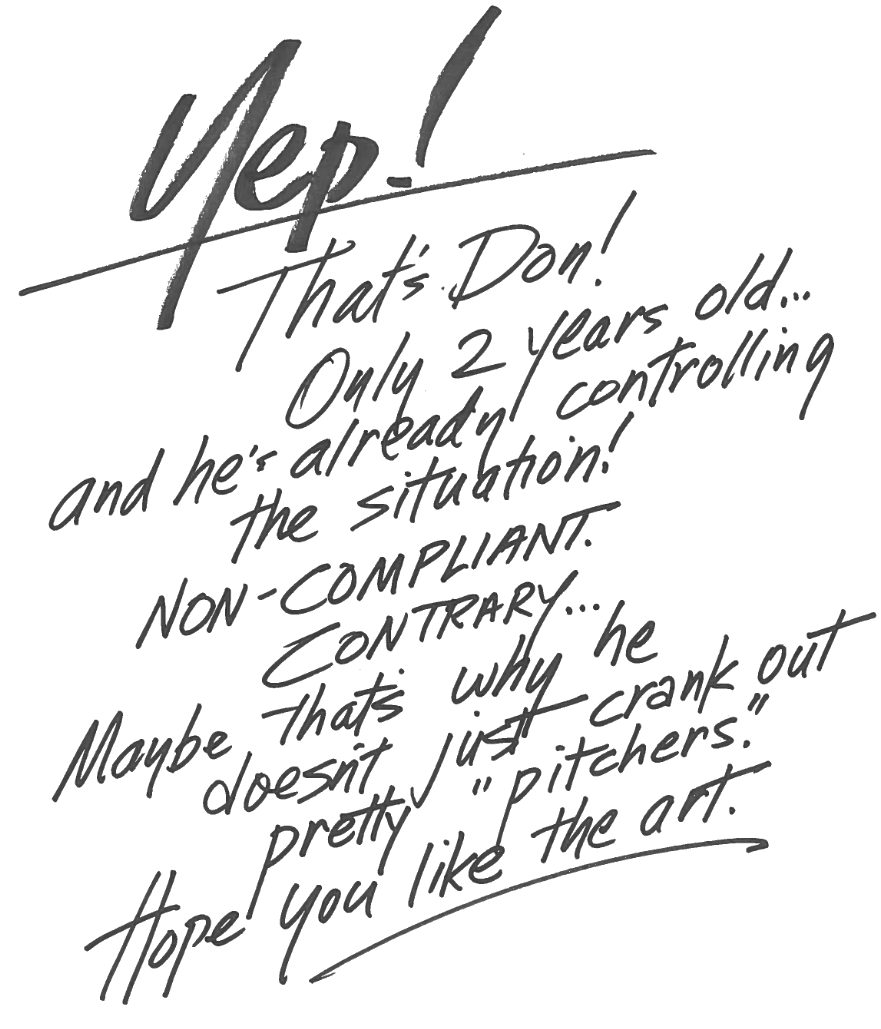 Yep!
That's Don!
Only 2 years old...
and he's already controlling
the situation!
NON-COMPLIANT.
CONTRARY...
Maybe that's why he
doesn't just crank out
pretty "pitchers."
Hope you like the art.